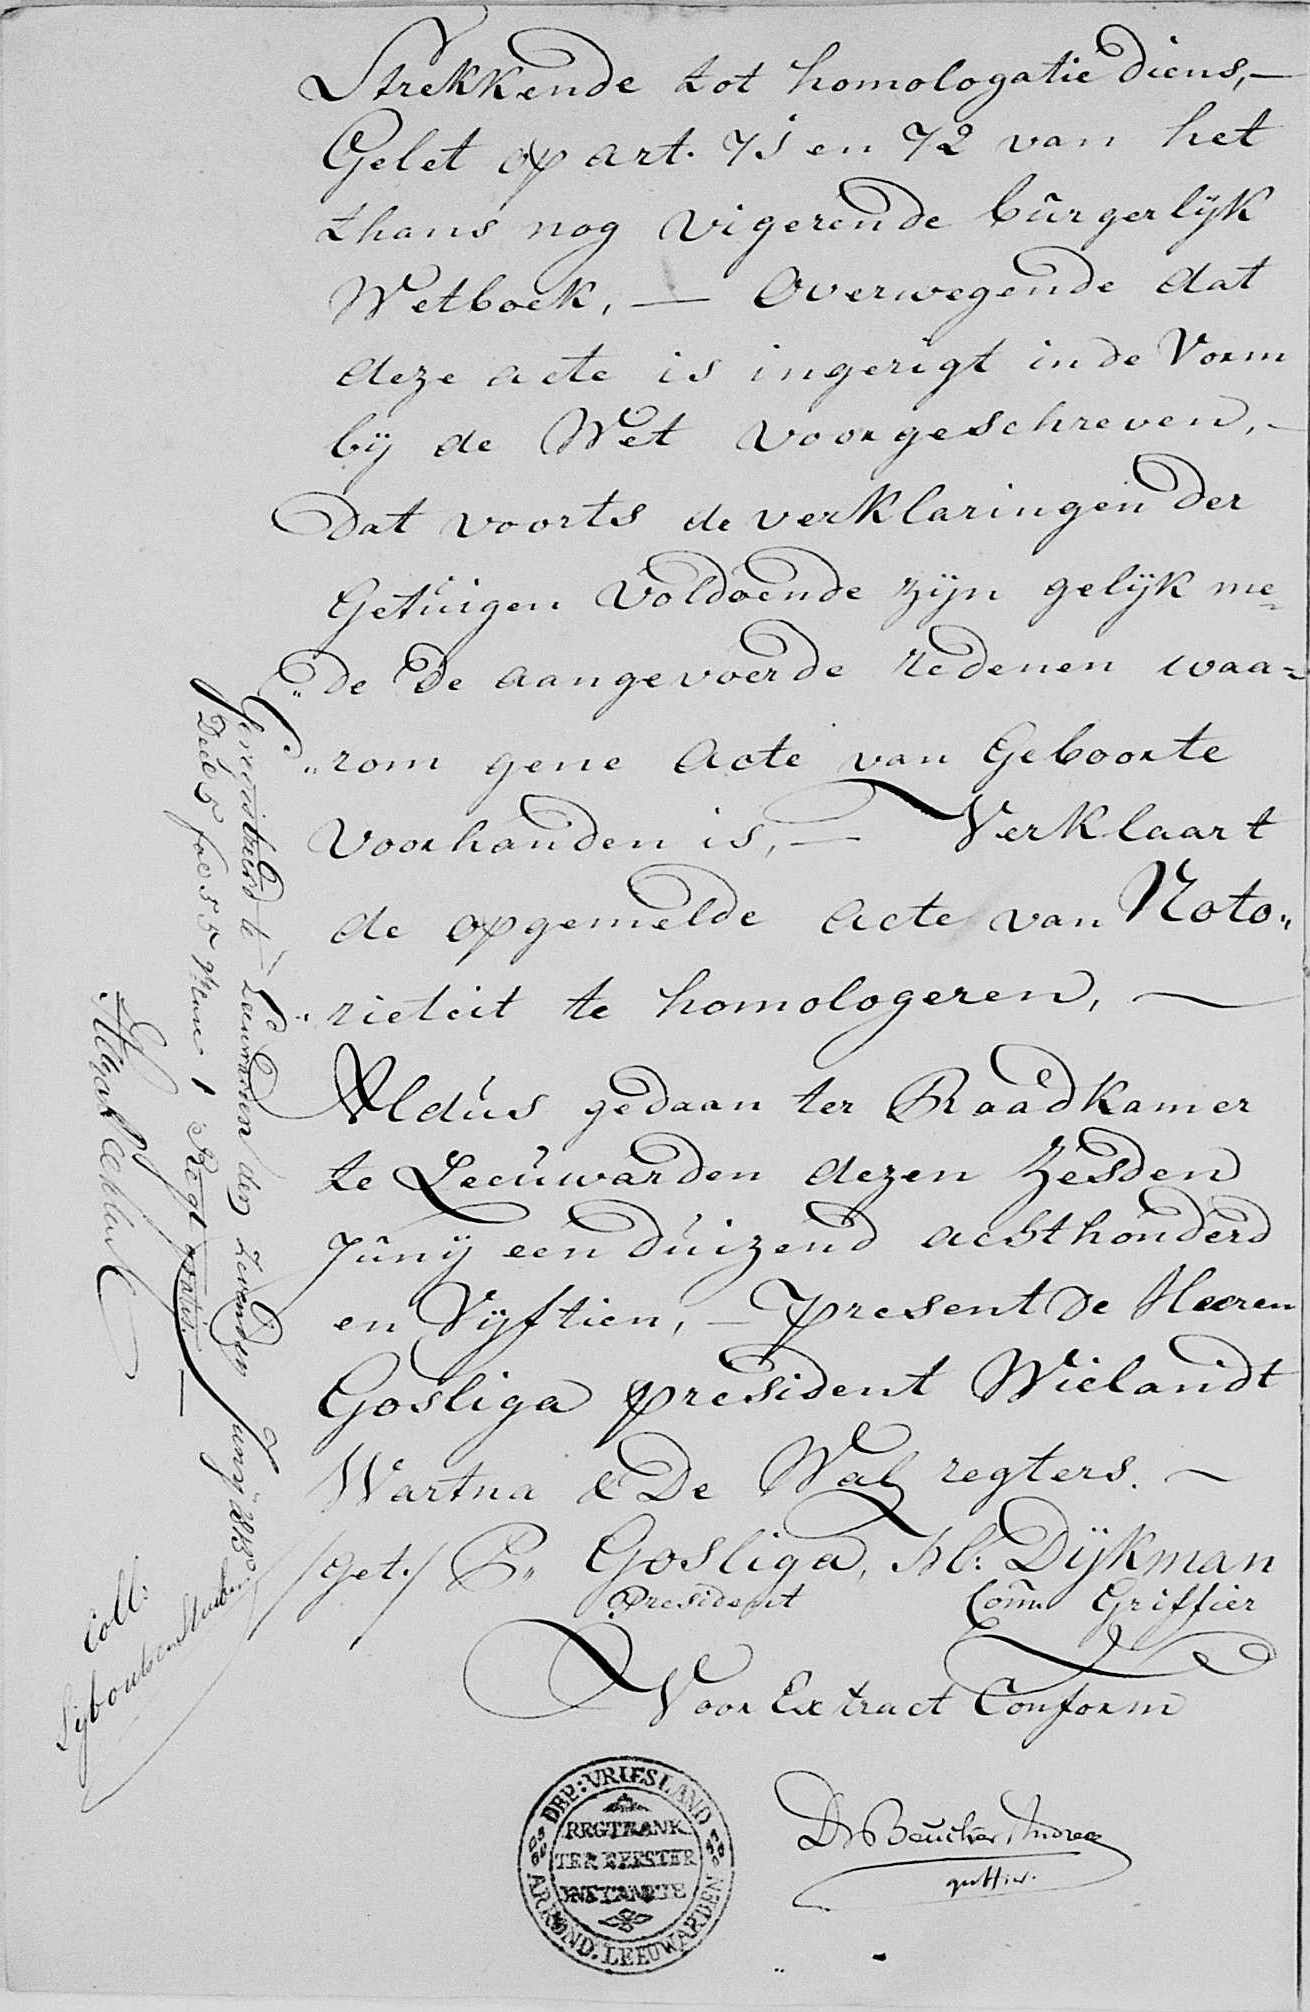 Strekkende tot homologatie diens, —
Gelet op art. 71 en 72 van het
thans nog vigerende burgerlijk
Wetboek, — Overwegende dat
deze acte is ingerigt in de Vorm
bij de Wet voorgeschreven, —
Dat voorts de verklaringen der
Getuigen Voldoende zijn gelijk me„
„de de aangevoerde redenen waa„
„rom gene acte van Geboorte
Voorhanden is, — Verklaart
de opgemelde acte van Noto„
„rieteit te homologeren, —
Aldus gedaan ter Raadkamer
te Leeuwarden dezen Zesden
Juny een duizend achthonderd
en Vijftien, — present de Heeren
Gosliga president Wielandt
Wartna & De Wal regters. —
/get./ P„ Gosliga, H: Dijkman
President Com. Griffier
Voor Extract Conform
Beucker Andreae
griffier.
Geregistreerd te Leeuwarden den zevenden Juny 1815
Deel 5 fol 55 Regt gratis. —
Coll:
DEP: VRIESLAND
REGTBANK
TER EERSTER
INSTANTIE
ARROND. LEEUWARDEN